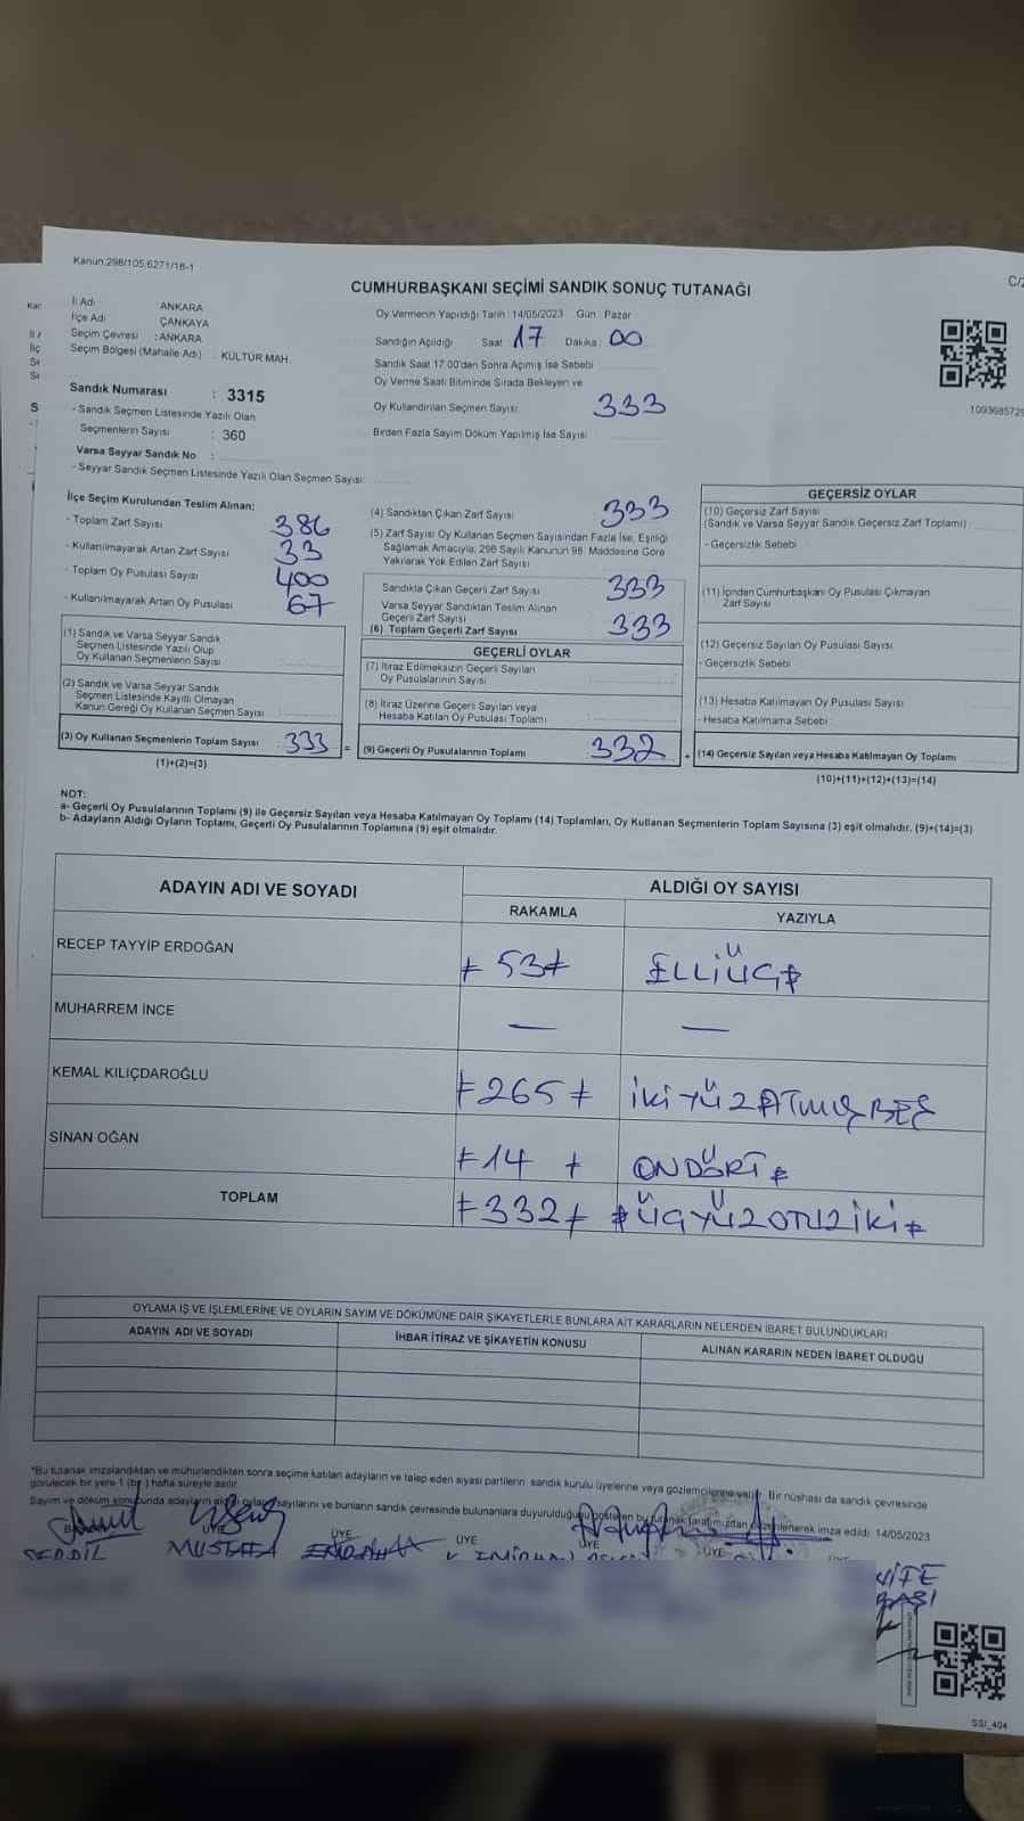 Kanun:298/105,6271/18-1
CUMHURBAŞKANI SEÇİMİ SANDIK SONUÇ TUTANAĞI
C/2
İl Adı : ANKARA
İlçe Adı : ÇANKAYA
Seçim Çevresi : ANKARA
Seçim Bölgesi (Mahalle Adı) : KÜLTÜR MAH.
Sandık Numarası : 3315
- Sandık Seçmen Listesinde Yazılı Olan
Seçmenlerin Sayısı : 360
Varsa Seyyar Sandık No :
- Seyyar Sandık Seçmen Listesinde Yazılı Olan Seçmen Sayısı:
Oy Vermenin Yapıldığı Tarih: 14/05/2023 Gün: Pazar
Sandığın Açıldığı Saat: 17 Dakika: 00
Sandık Saat 17.00'den Sonra Açılmış İse Sebebi
Oy Verme Saati Bitiminde Sırada Bekleyen ve
Oy Kullandırılan Seçmen Sayısı: 333
Birden Fazla Sayım Döküm Yapılmış İse Sayısı
İlçe Seçim Kurulundan Teslim Alınan:
- Toplam Zarf Sayısı 386
- Kullanılmayarak Artan Zarf Sayısı 33
- Toplam Oy Pusulası Sayısı 400
- Kullanılmayarak Artan Oy Pusulası 67
(1) Sandık ve Varsa Seyyar Sandık
Seçmen Listesinde Yazılı Olup
Oy Kullanan Seçmenlerin Sayısı
(2) Sandık ve Varsa Seyyar Sandık
Seçmen Listesinde Kayıtlı Olmayan
Kanun Gereği Oy Kullanan Seçmen Sayısı
(3) Oy Kullanan Seçmenlerin Toplam Sayısı 333 =
(1)+(2)=(3)
(4) Sandıktan Çıkan Zarf Sayısı 333
(5) Zarf Sayısı Oy Kullanan Seçmen Sayısından Fazla İse, Eşitliği
Sağlamak Amacıyla, 298 Sayılı Kanunun 98. Maddesine Göre
Yakılarak Yok Edilen Zarf Sayısı
Sandıkta Çıkan Geçerli Zarf Sayısı 333
Varsa Seyyar Sandıktan Teslim Alınan
Geçerli Zarf Sayısı
(6) Toplam Geçerli Zarf Sayısı 333
GEÇERLİ OYLAR
(7) İtiraz Edilmeksizin Geçerli Sayılan
Oy Pusulalarının Sayısı
(8) İtiraz Üzerine Geçerli Sayılan veya
Hesaba Katılan Oy Pusulası Toplamı
(9) Geçerli Oy Pusulalarının Toplamı 332 +
GEÇERSİZ OYLAR
(10) Geçersiz Zarf Sayısı
(Sandık ve Varsa Seyyar Sandık Geçersiz Zarf Toplamı)
- Geçersizlik Sebebi
(11) İçinden Cumhurbaşkanı Oy Pusulası Çıkmayan
Zarf Sayısı
(12) Geçersiz Sayılan Oy Pusulası Sayısı
- Geçersizlik Sebebi
(13) Hesaba Katılmayan Oy Pusulası Sayısı
- Hesaba Katılmama Sebebi
(14) Geçersiz Sayılan veya Hesaba Katılmayan Oy Toplamı
(10)+(11)+(12)+(13)=(14)
NOT:
a- Geçerli Oy Pusulalarının Toplamı (9) ile Geçersiz Sayılan veya Hesaba Katılmayan Oy Toplamı (14) Toplamları, Oy Kullanan Seçmenlerin Toplam Sayısına (3) eşit olmalıdır. (9)+(14)=(3)
b- Adayların Aldığı Oyların Toplamı, Geçerli Oy Pusulalarının Toplamına (9) eşit olmalıdır.
ADAYIN ADI VE SOYADI ALDIĞI OY SAYISI
RAKAMLA YAZIYLA
RECEP TAYYİP ERDOĞAN 53 ELLİÜÇ
MUHARREM İNCE — —
KEMAL KILIÇDAROĞLU 265 İKİYÜZATMIŞBEŞ
SİNAN OĞAN 14 ONDÖRT
TOPLAM 332 ÜÇYÜZOTUZİKİ
OYLAMA İŞ VE İŞLEMLERİNE VE OYLARIN SAYIM VE DÖKÜMÜNE DAİR ŞİKAYETLERLE BUNLARA AİT KARARLARIN NELERDEN İBARET BULUNDUKLARI
ADAYIN ADI VE SOYADI İHBAR İTİRAZ VE ŞİKAYETİN KONUSU ALINAN KARARIN NEDEN İBARET OLDUĞU
*Bu tutanak imzalandıktan ve mühürlendikten sonra seçime katılan adayların ve talep eden siyasi partilerin sandık kurulu üyelerine veya gözlemcilerine verilir. Bir nüshası da sandık çevresinde
görülecek bir yere 1 (bir) hafta süreyle asılır.
Sayım ve döküm sonucunda adayların aldığı oyların sayılarını ve bunların sandık çevresinde bulunanlara duyurulduğunu gösteren bu tutanak tarafımızdan düzenlenerek imza edildi. 14/05/2023
ÜYE ÜYE ÜYE ÜYE ÜYE
MUSTAFA
SSI_404